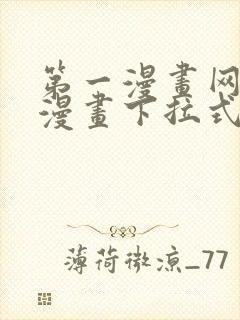 第一漫畫网
漫畫下拉式
薄荷微涼_77